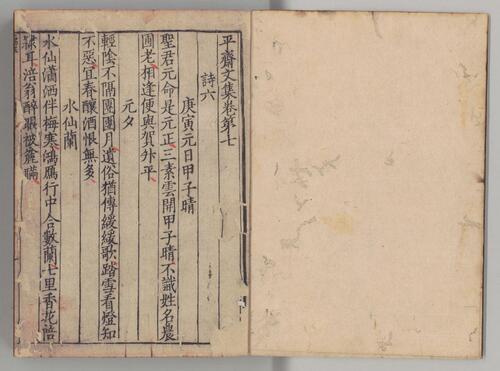 平齋文集卷第七
詩六
庚寅元日甲子晴
聖君元命是元正三素雲開甲子晴不識姓名農
圃老相逢便與賀升平
元夕
輕陰不隔團團月遺俗猶傳緩緩歌踏雪看燈知
不惡宜春釀酒恨無多
水仙蘭
水仙瀟洒伴梅寒鴻鴈行中合數蘭七里香花陪
隷耳涪翁醉眼被瞞